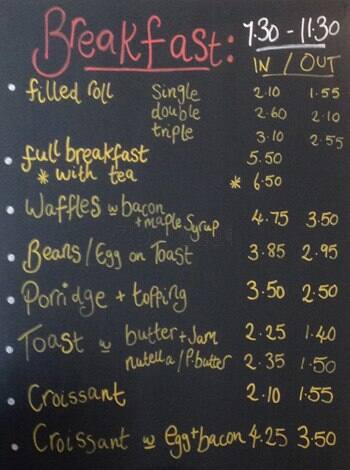 Breakfast: 7.30 - 11.30
IN / OUT
filled roll Single 2.10 1.55
double 2.60 2.10
triple 3.10 2.55
full breakfast 5.50
* with tea * 6.50
Waffles w bacon
+ maple Syrup 4.75 3.50
Beans / Egg on Toast 3.85 2.95
Porridge + topping 3.50 2.50
Toast w butter + Jam 2.25 1.40
nutella / P.butter 2.35 1.50
Croissant 2.10 1.55
Croissant w egg + bacon 4.25 3.50